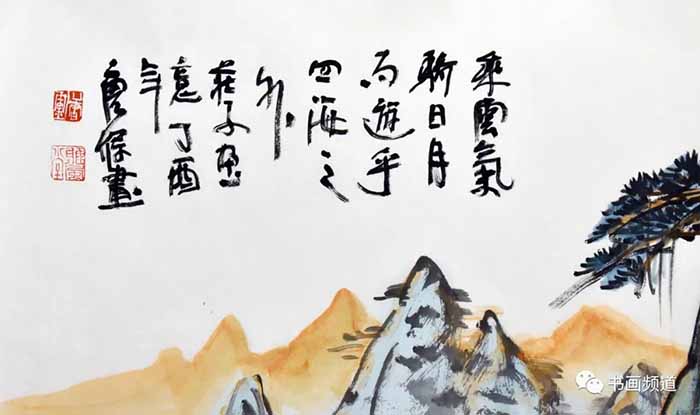 乘雲氣
騎日月
而遊乎
四海之
外
莊子
意丁酉
年
畫
书画频道